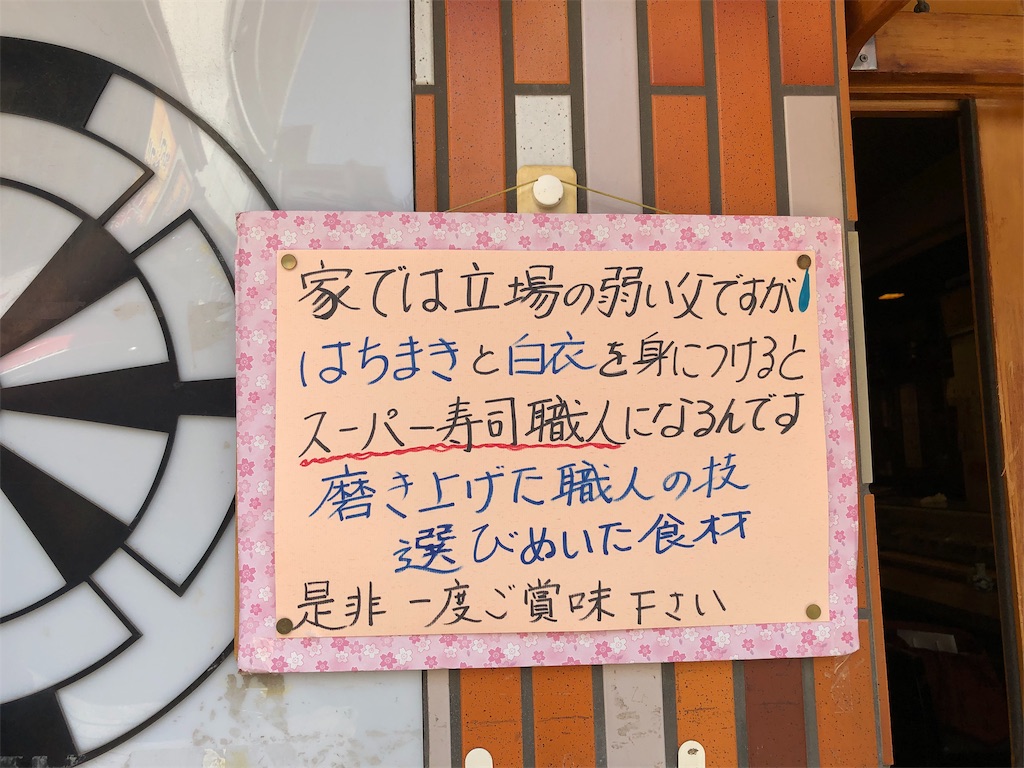 家では立場の弱い父ですが
はちまきと白衣を身につけると
スーパー寿司職人になるんです
磨き上げた職人の技
選びぬいた食材
是非一度ご賞味下さい